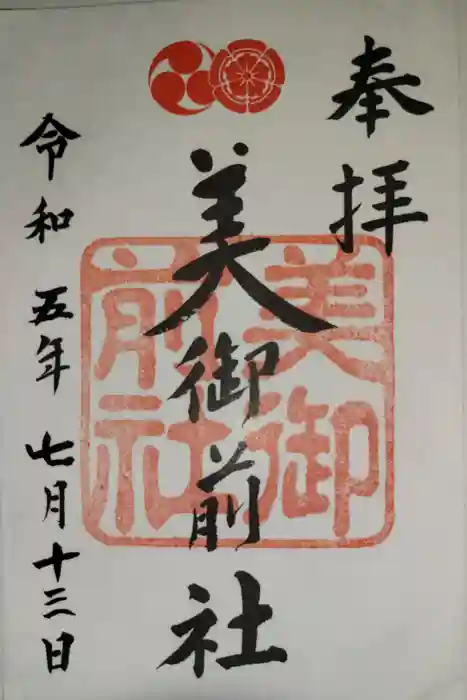 奉拝
美御前社
美御前社
令和五年七月十三日